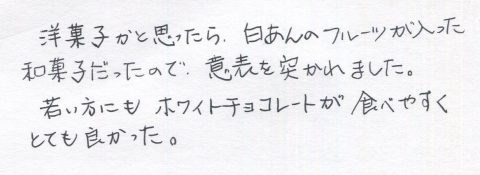 洋菓子かと思ったら、白あんのフルーツが入った
和菓子だったので、意表を突かれました。
若い方にも ホワイトチョコレートが 食べやすく
とても良かった。